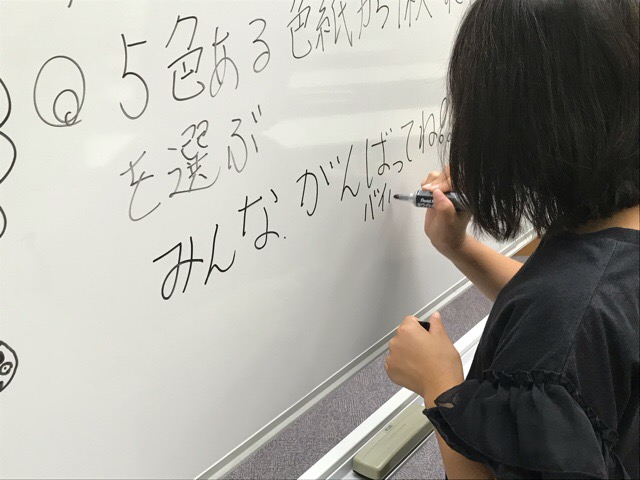 Q 5色ある色紙から1枚
を選ぶ
みんながんばってね!!
バイ
Pentel